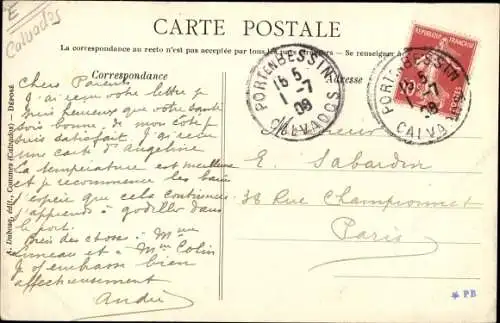 E
Calvados
CARTE POSTALE
La correspondance au recto n'est pas acceptée par tous les pays étrangers. — Se renseigner à
Correspondance
Adresse
PORT-EN-BESSIN
16 5
1 - 7
08
CALVADOS
PORT-EN-BESSIN
16 5
1 - 7
08
CALVA
RÉPUBLIQUE FRANÇAISE
POSTES
Chers Parents
J'ai reçu votre lettre je
suis heureux que votre santé
sois bonne, de mon côté je
suis satisfait. J'ai reçu
une carte d'Angeline
La température est meilleure
et je recommence les bains
J'espère que cela continuera
J'apprends à godiller dans
le port.
Bien des choses à Mme
et à Mme Colin
Je t'embrasse bien
affectueusement
André
Monsieur
E Sabardin
38 Rue Championnet
Paris
A. Dubosq, édit., Commes (Calvados) — DÉPOSÉ
* PB